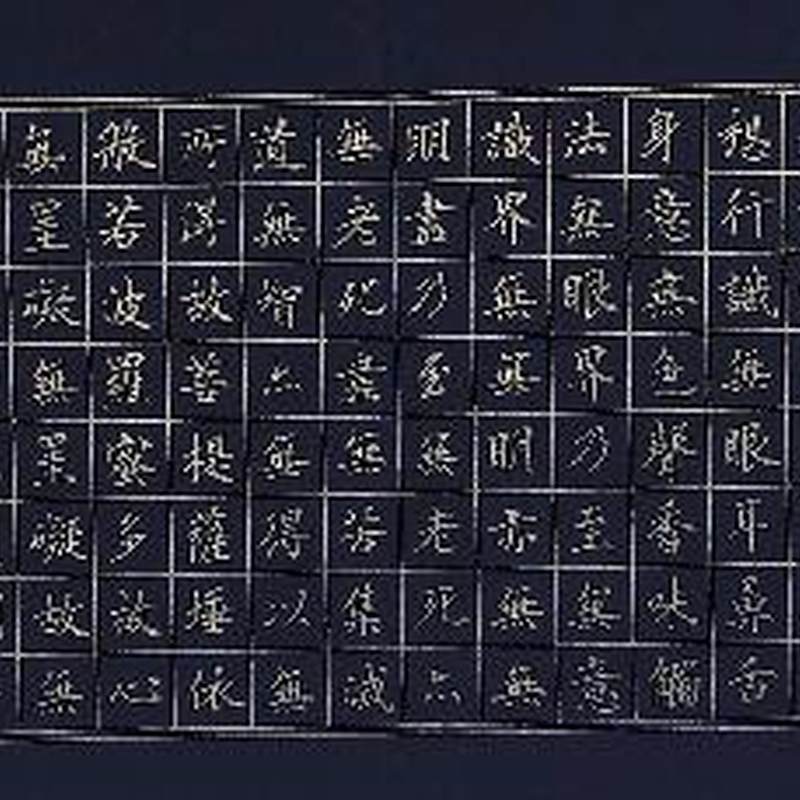 想行識無眼耳鼻舌
身意無色聲香味觸
法無眼界乃至無意
識界無無明亦無無
明盡乃至無老死亦
無老死盡無苦集滅
道無智亦無得以無
所得故菩提薩埵依
般若波羅蜜多故心
無罣礙無罣礙故無